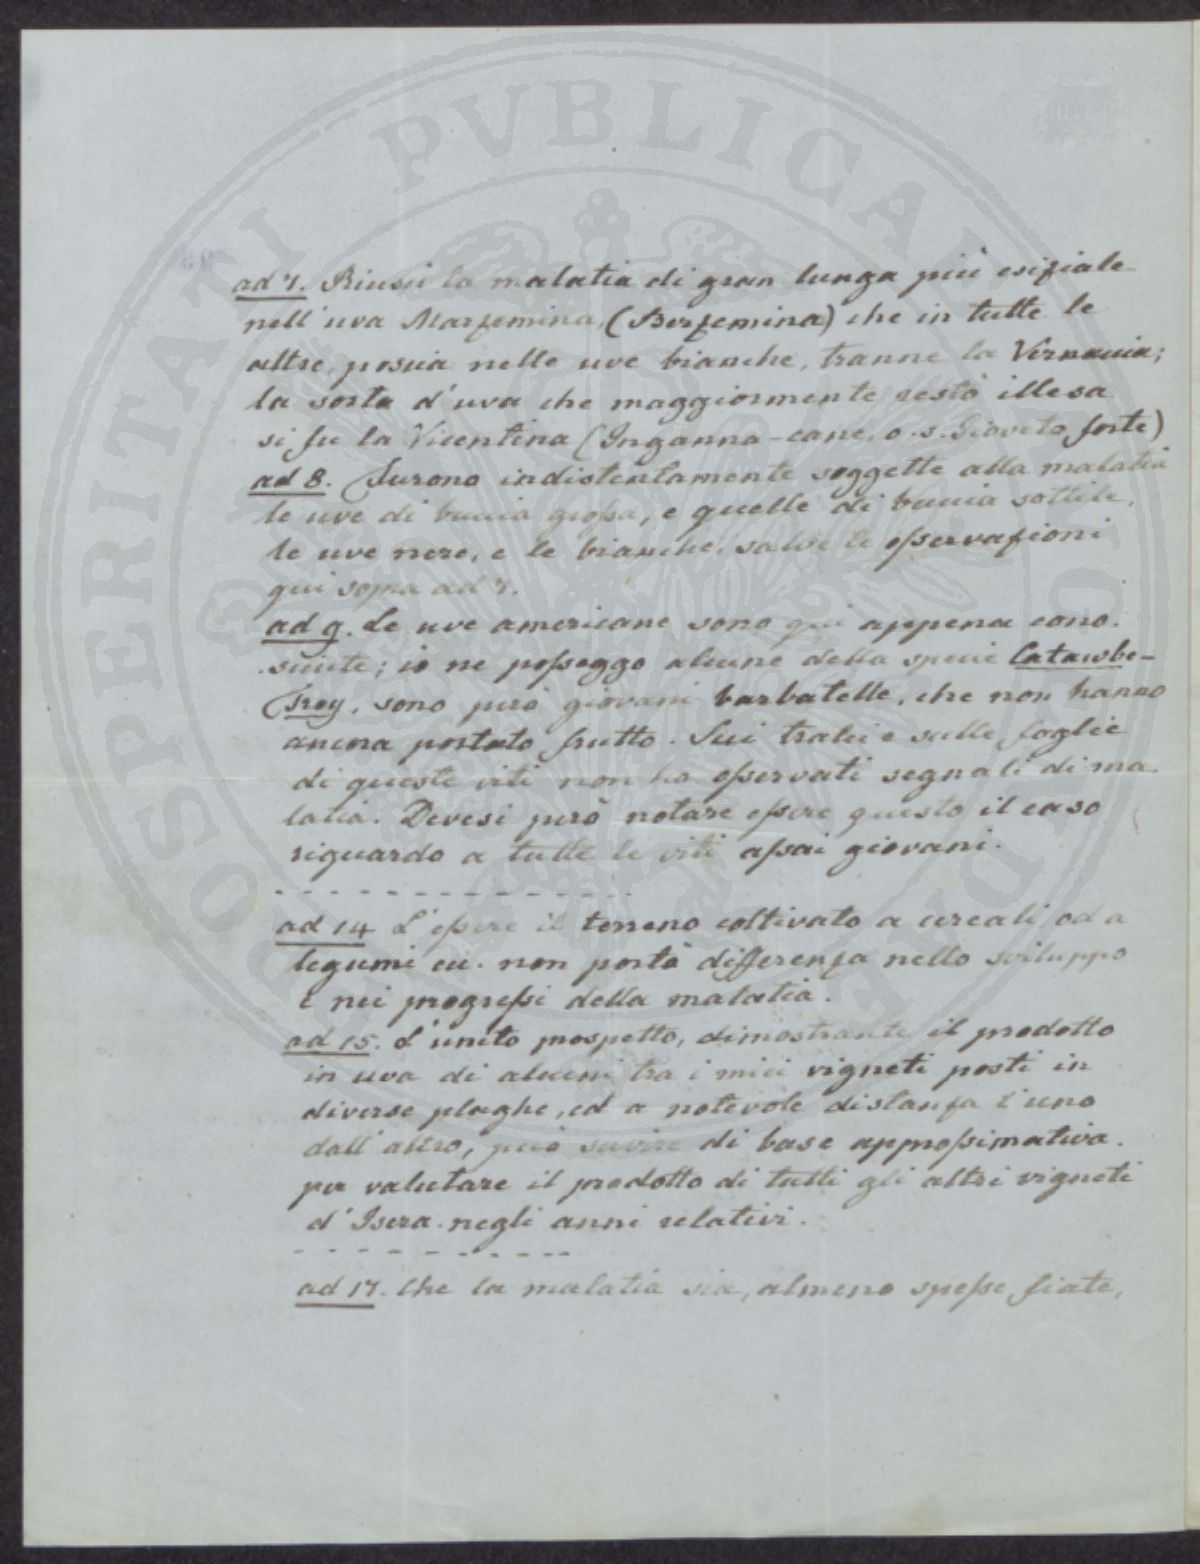 PROSPERITATI PVBLICAE
ad 7. Riuscì la malatia di gran lunga più esiziale
nell'uva Marzemina, (Berzemina) che in tutte le
altre, poscia nelle uve bianche, tranne la Vernaccia;
la sorta d'uva che maggiormente restò illesa
si fu la Vicentina (Inganna-cane, o. s. Gioveto forte)
ad 8. Furono indistentamente soggette alla malatia
le uve di buccia grossa, e quelle di buccia sottile,
le uve nere, e le bianche, salve le osservazioni
qui sopra ad 7.
ad 9. Le uve americane sono qui appena cono-
sciute; io ne posseggo alcune della specie Catawbe-
Troy, sono però giovani barbatelle, che non hanno
ancora portato frutto. Sui tralci e sulle foglie
di queste viti non ho osservati segnali di ma-
latia. Devesi però notare essere questo il caso
riguardo a tutte le viti assai giovani.
- - - - - - - - - - - - - - - -
ad 14 L'essere il terreno coltivato a cereali od a
legumi ecc. non portò differenza nello sviluppo
e nei progressi della malatia.
ad 15. L'unito prospetto, dimostrante il prodotto
in uva di alcuni tra i miei vigneti posti in
diverse plaghe, ed a notevole distanza l'uno
dall'altro, può servire di base approssimativa
per valutare il prodotto di tutti gli altri vigneti
d'Isera negli anni relativi.
- - - - - - - - - - - -
ad 17. Che la malatia sia, almeno spesse fiate,